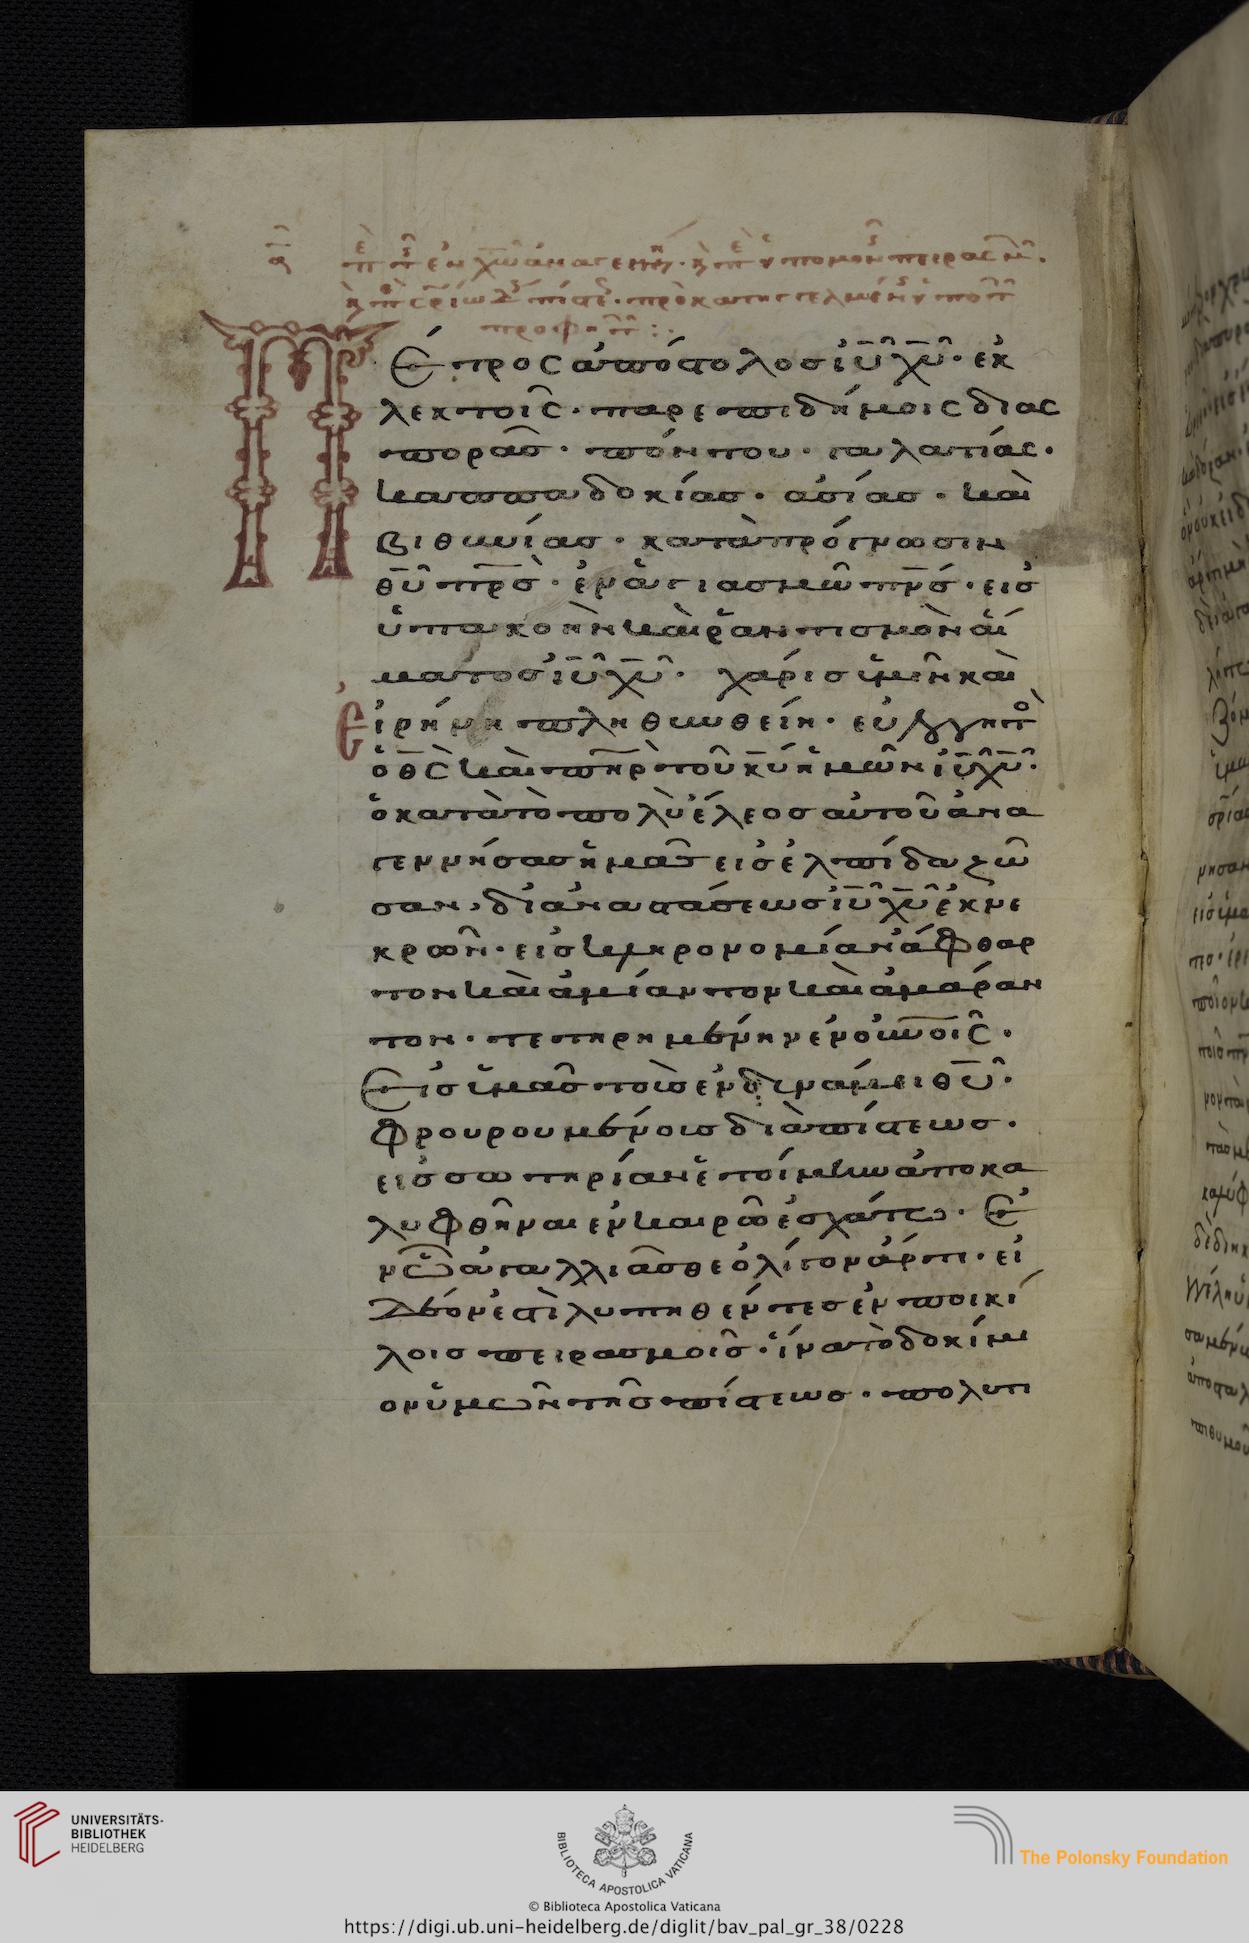 Πέτρος ἀπόστολος ἰυ χυ· ἐκ
λεκτοῖς· παρεπιδήμοις διας
πορᾶς· πόντου· γαλατίας·
καππαδοκίας· ἀσίας· καὶ
βιθυνίας· κατὰ πρόγνωσιν
θυ πρς· ἐν ἁγιασμῶ πνς· εἰσ
ὑπακοὴν καὶ ῥαντισμὸν αἵ
ματος ἰυ χυ· χάρις ὑμῖν καὶ
εἰρήνη πληθυνθείη· εὐλογητὸς
ὁ θς καὶ πηρ τοῦ κυ ἡμῶν ἰυ χυ·
ὁ κατὰ τὸ πολὺ ἔλεος αὐτοῦ ἀνα
γεννήσας ἡμᾶς εἰς ἐλπίδα ζῶ
σαν, δι ἀναστάσεως ἰυ χυ ἐκ νε
κρῶν· εἰς κληρονομίαν ἄφθαρ
τον καὶ ἀμίαντον καὶ ἀμάραν
τον· τετηρημένην ἐν οὐνοῖς·
Εἰς ὑμᾶς τοὺς ἐν δυνάμει θυ·
φρουρουμένοις διὰ πίστεως·
εἰς σωτηρίαν ἑτοίμην ἀποκα
λυφθῆναι ἐν καιρῶ ἐσχάτω· Ἐ
ν ὧ ἀγαλλιᾶσθε ὀλίγον ἄρτι· εἰ
δέον ἐστὶ λυπηθέντες ἐν ποικί
λοις πειρασμοῖς· ἵνα τὸ δοκίμι
ον ὑμῶν τῆς πίστεως· πολυτι
UNIVERSITÄTS-
BIBLIOTHEK
HEIDELBERG
BIBLIOTECA APOSTOLICA VATICANA
The Polonsky Foundation
© Biblioteca Apostolica Vaticana
https://digi.ub.uni-heidelberg.de/diglit/bav_pal_gr_38/0228